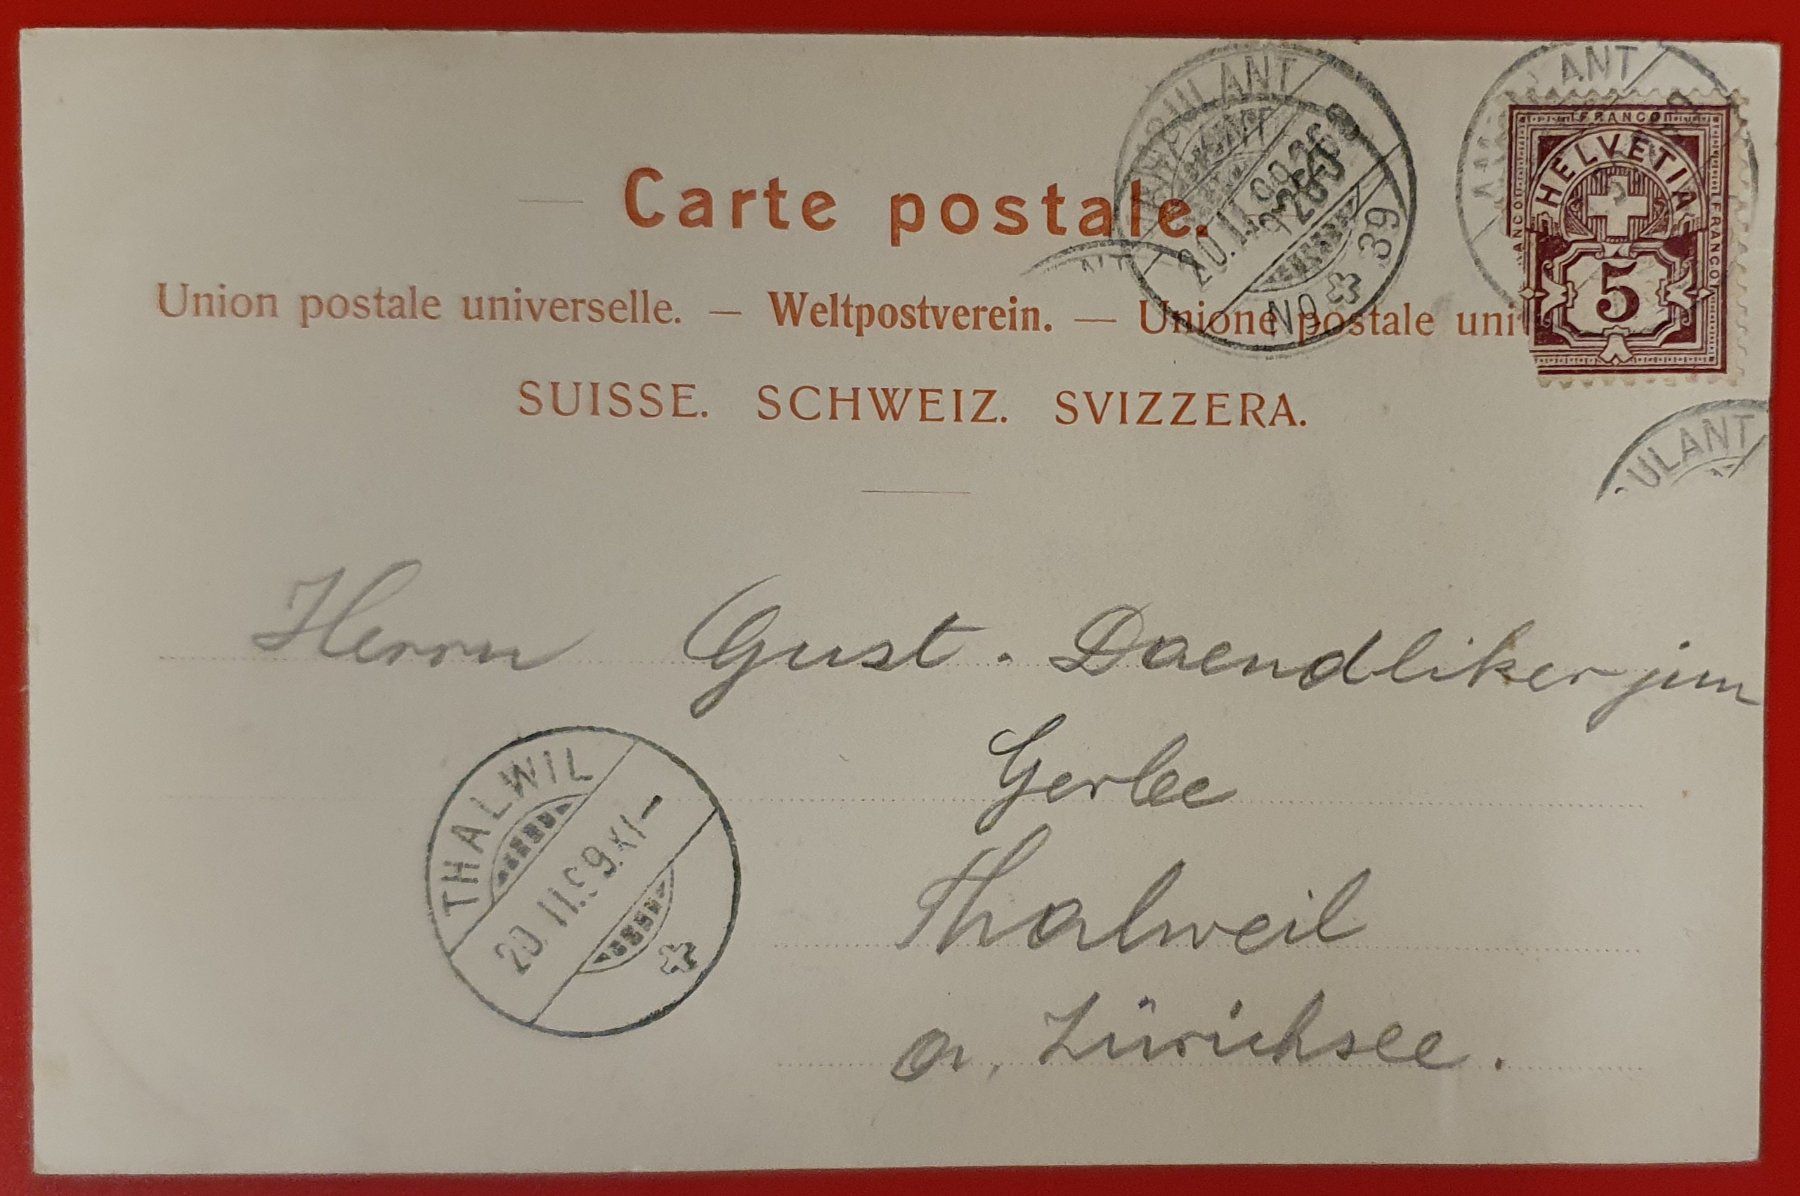 AMBULANT
20.II.99
No 39
AMBULANT
FRANCO
FRANCO
FRANCO
HELVETIA
5
Carte postale.
Union postale universelle. — Weltpostverein. — Unione postale uni
SUISSE. SCHWEIZ. SVIZZERA.
ULANT
Herrn Gust. Daendliker jun
Gerbe
Thalweil
a. Zürichsee.
THALWIL
20.II.99.XI–